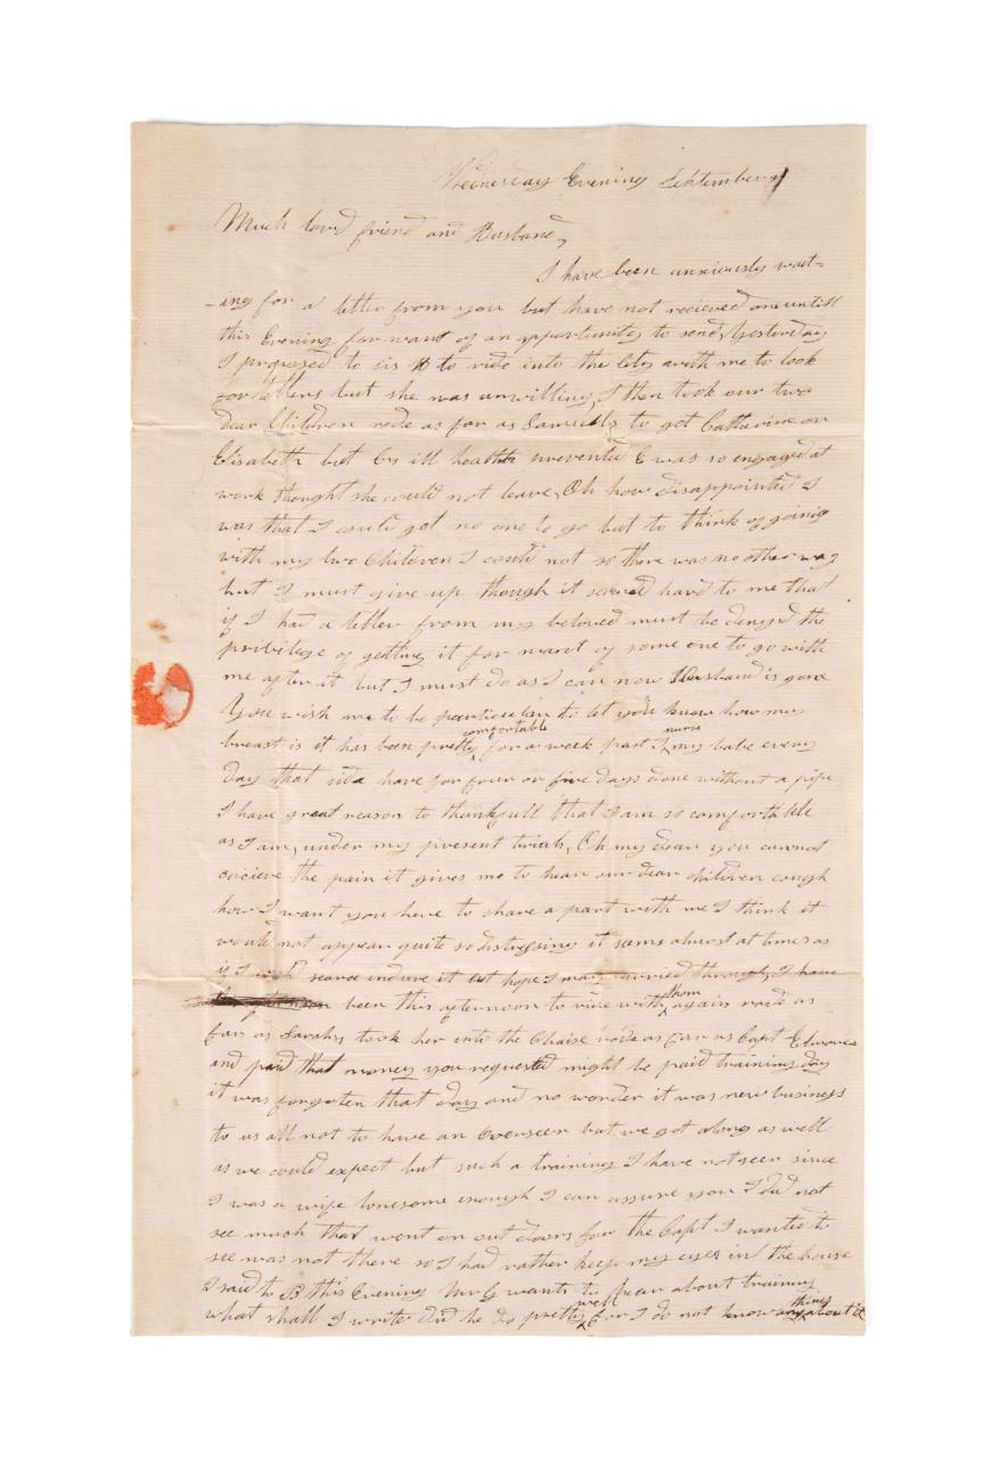 Wednesday Evening September
Much loved friend and Husband,
I have been anxiously wait=
-ing for a letter from you but have not recieved one untill
this Evening for want of an opportunity to send, Yesterday
I proposed to sis B to ride into the City with me to look
for letters but she was unwilling, I then took our two
dear Children rode as far as Samuells to get Catherine or
Elisabeth but Cs ill health prevented E was so engaged at
work thought she could not leave, Oh how disappointed I
was that I could get no one to go but to think of going
with my two Children I could not so there was no other way
but I must give up though it seemed hard to me that
if I had a letter from my beloved must be denyed the
privilege of getting it for want of some one to go with
me after it but I must do as I can now Husband is gone
You wish me to be particular to let you know how my
breast is it has been pretty comfortable for a week past I nurse my babe every
day that side have for four or five days done without a pipe
I have great reason to thankfull that I am so comfortable
as I am, under my present trials, Oh my dear you cannot
concieve the pain it gives me to hear our dear children cough
how I want you here to share a part with me I think it
would not appear quite so distressing it seems almost at times as
if I could scarce endure it but hope I may carried through, I have
been this afternoon to ride with them again rode as
far as Sarahs took her into the Chaise rode as far as Capt
and paid that money you requested might be paid training day
it was forgoten that day and no wonder it was new business
to us all not to have an Overseer but we got along as well
as we could expect but such a training I have not seen since
I was a wife lonesome enough I can assure you I did not
see much that went on out doors for the Capt I wanted to
see was not there so I had rather keep my eyes in the house
I said to B this Evening Mr G wants to hear about training
what shall I write did he do pretty well for I do not know any thing about it